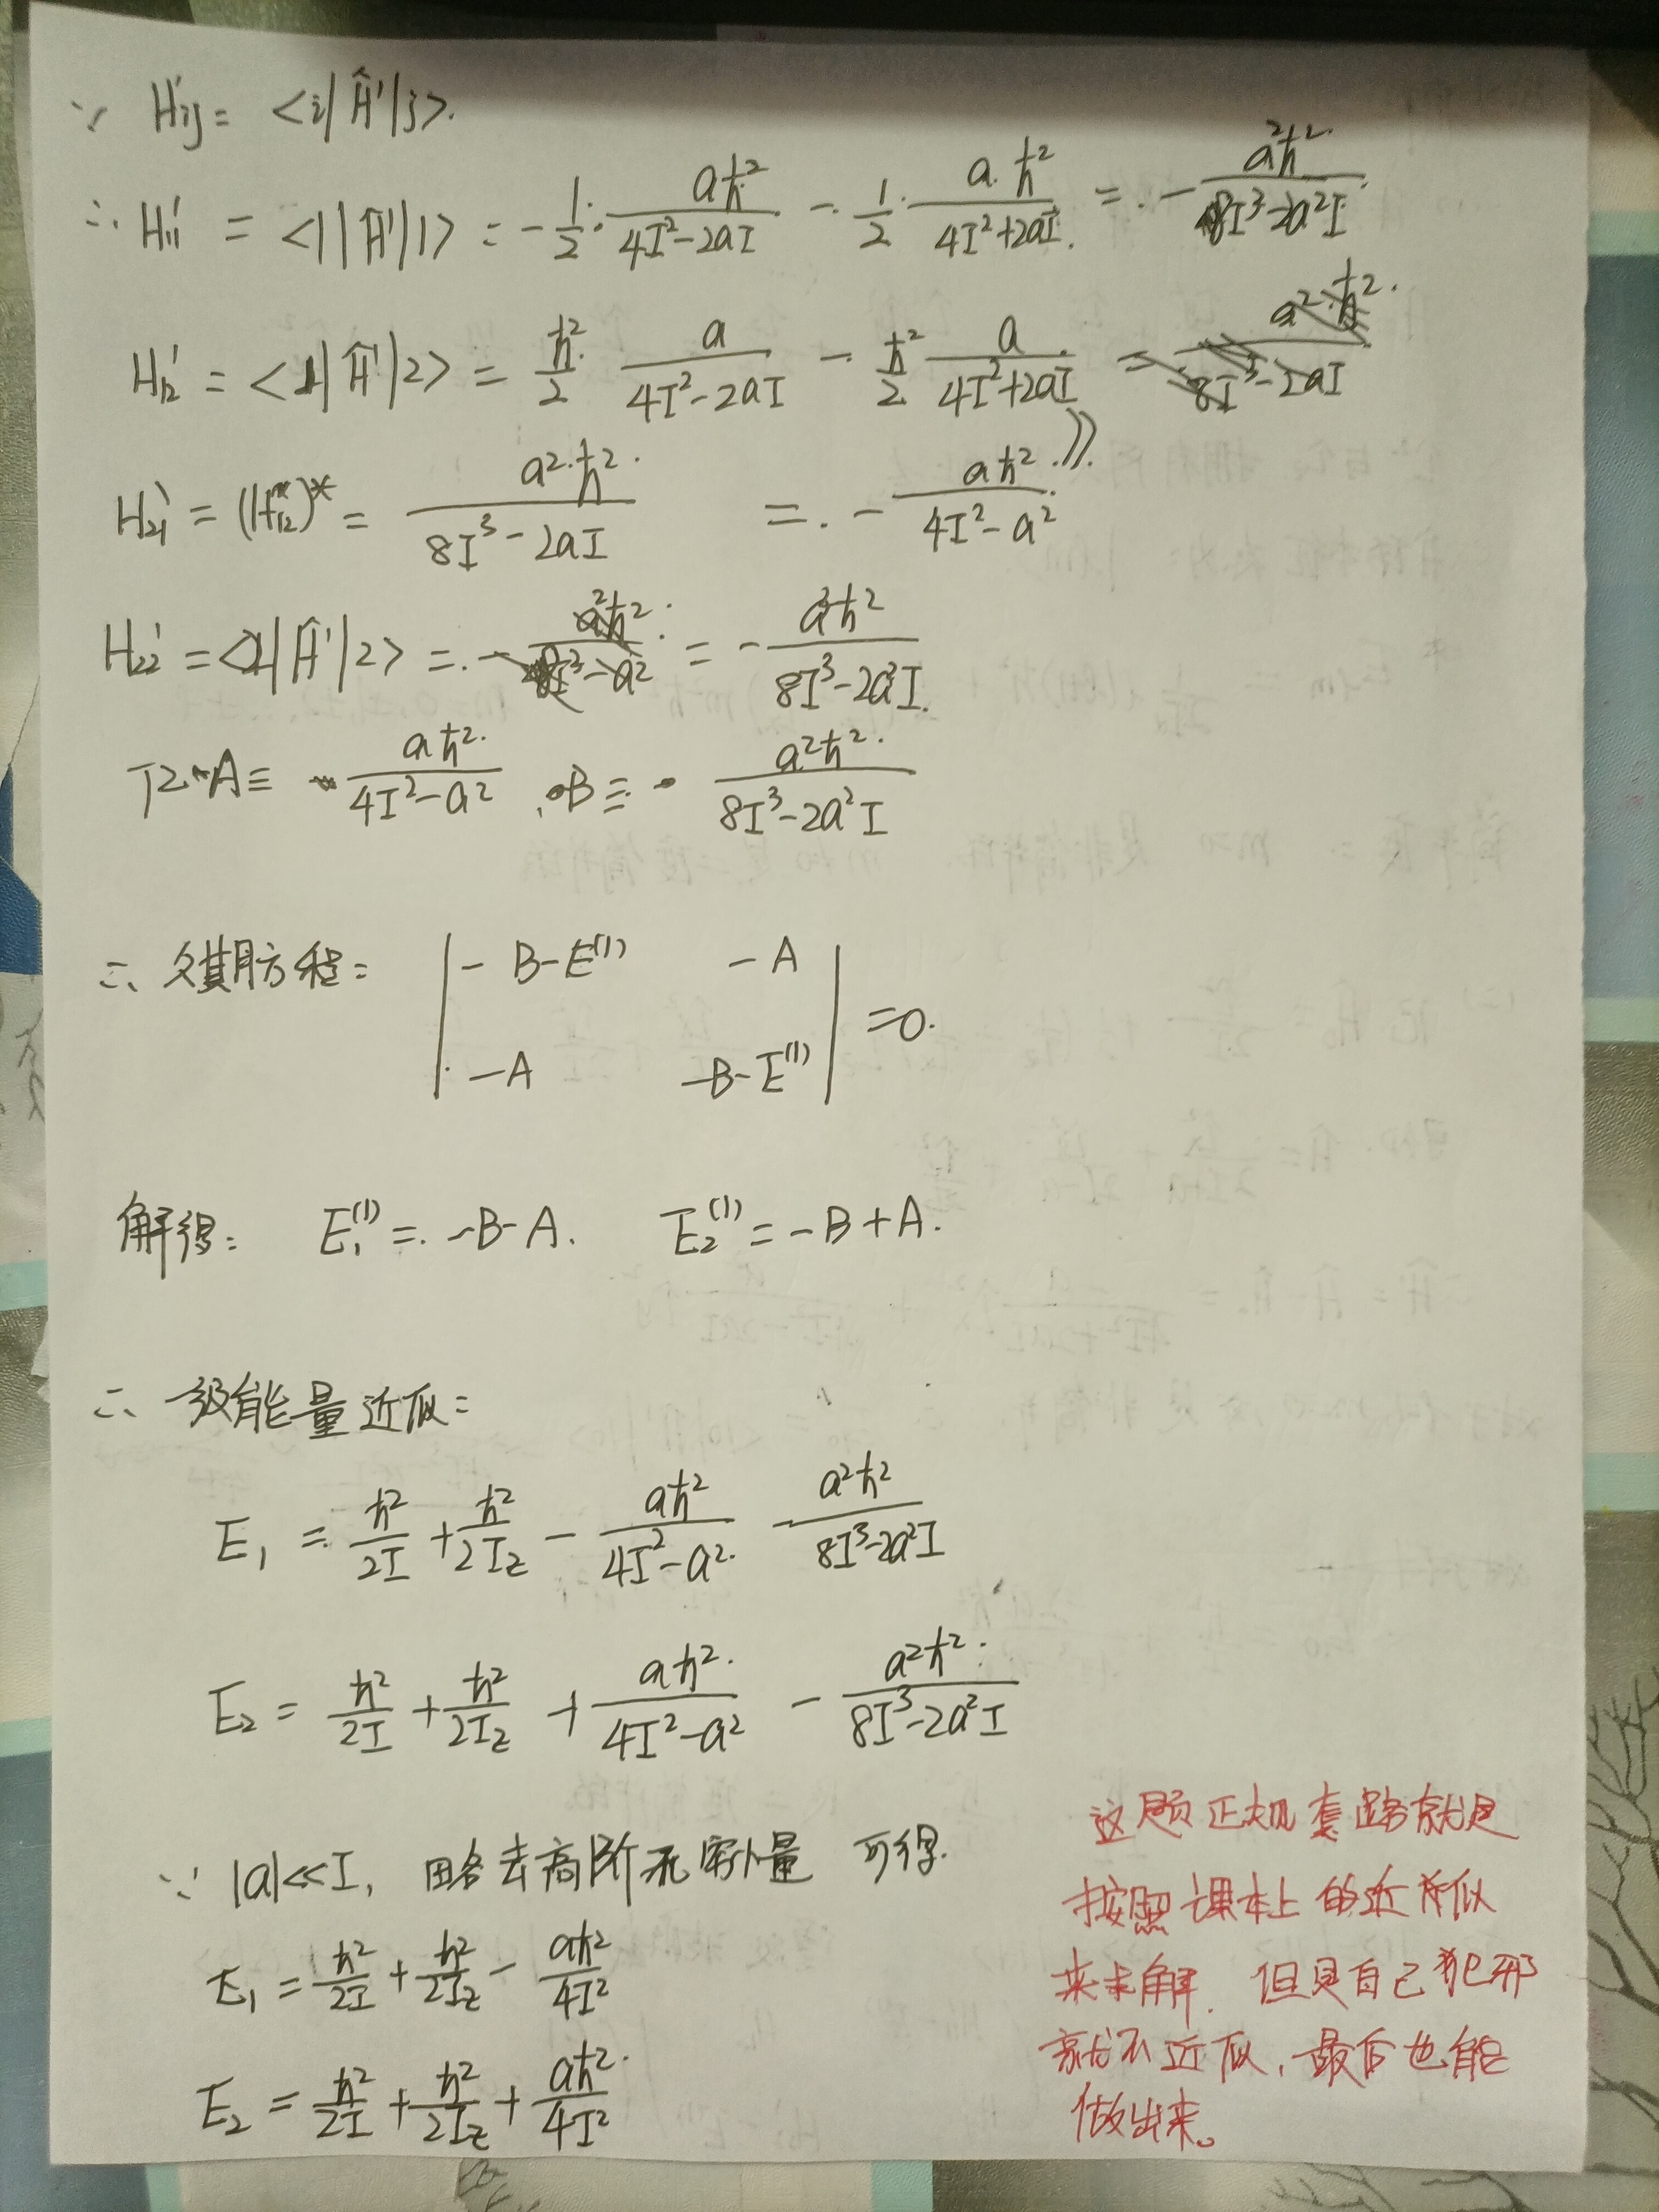 ∵ H'ij = <i|Ĥ'|j>.
∴ H'11 = <1|Ĥ'|1> = -1/2 · aħ²/(4I²-2aI) - 1/2 · aħ²/(4I²+2aI) = -a²ħ²/(8I³-2a²I)
H'12 = <1|Ĥ'|2> = ħ²/2 · a/(4I²-2aI) - ħ²/2 · a/(4I²+2aI) = a²·ħ²/(8I³-2aI)
H'21 = (H'12)* = a²·ħ²/(8I³-2aI) = -aħ²/(4I²-a²)
H'22 = <2|Ĥ'|2> = -a²ħ²/(8I³-a²) = -a²ħ²/(8I³-2a²I)
记 A ≡ aħ²/(4I²-a²), B ≡ a²ħ²/(8I³-2a²I)
∴ 久期方程: | -B-E⁽¹⁾ -A |
| -A -B-E⁽¹⁾ | =0.
解得: E₁⁽¹⁾ = -B-A. E₂⁽¹⁾ = -B+A.
∴ 一级能量近似:
E₁ = ħ²/2I + ħ²/2Iz - aħ²/(4I²-a²) - a²ħ²/(8I³-2a²I)
E₂ = ħ²/2I + ħ²/2Iz + aħ²/(4I²-a²) - a²ħ²/(8I³-2a²I)
∵ |a|<<I, 略去高阶无穷小量 可得.
E₁ = ħ²/2I + ħ²/2Iz - aħ²/4I²
E₂ = ħ²/2I + ħ²/2Iz + aħ²/4I²
这题正规套路就是
按照课本上的近似
来求解. 但是自己犯邪
就不近似, 最后也能
做出来。